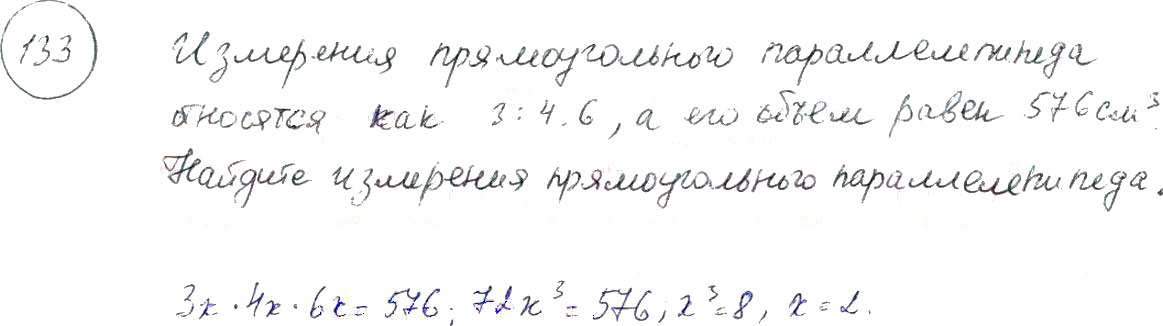 133 Измерения прямоугольного параллелепипеда
относятся как 3:4.6, а его объем равен 576 см³.
Найдите измерения прямоугольного параллелепипеда.
3x · 4x · 6x = 576; 72x³ = 576; x³ = 8, x = 2.